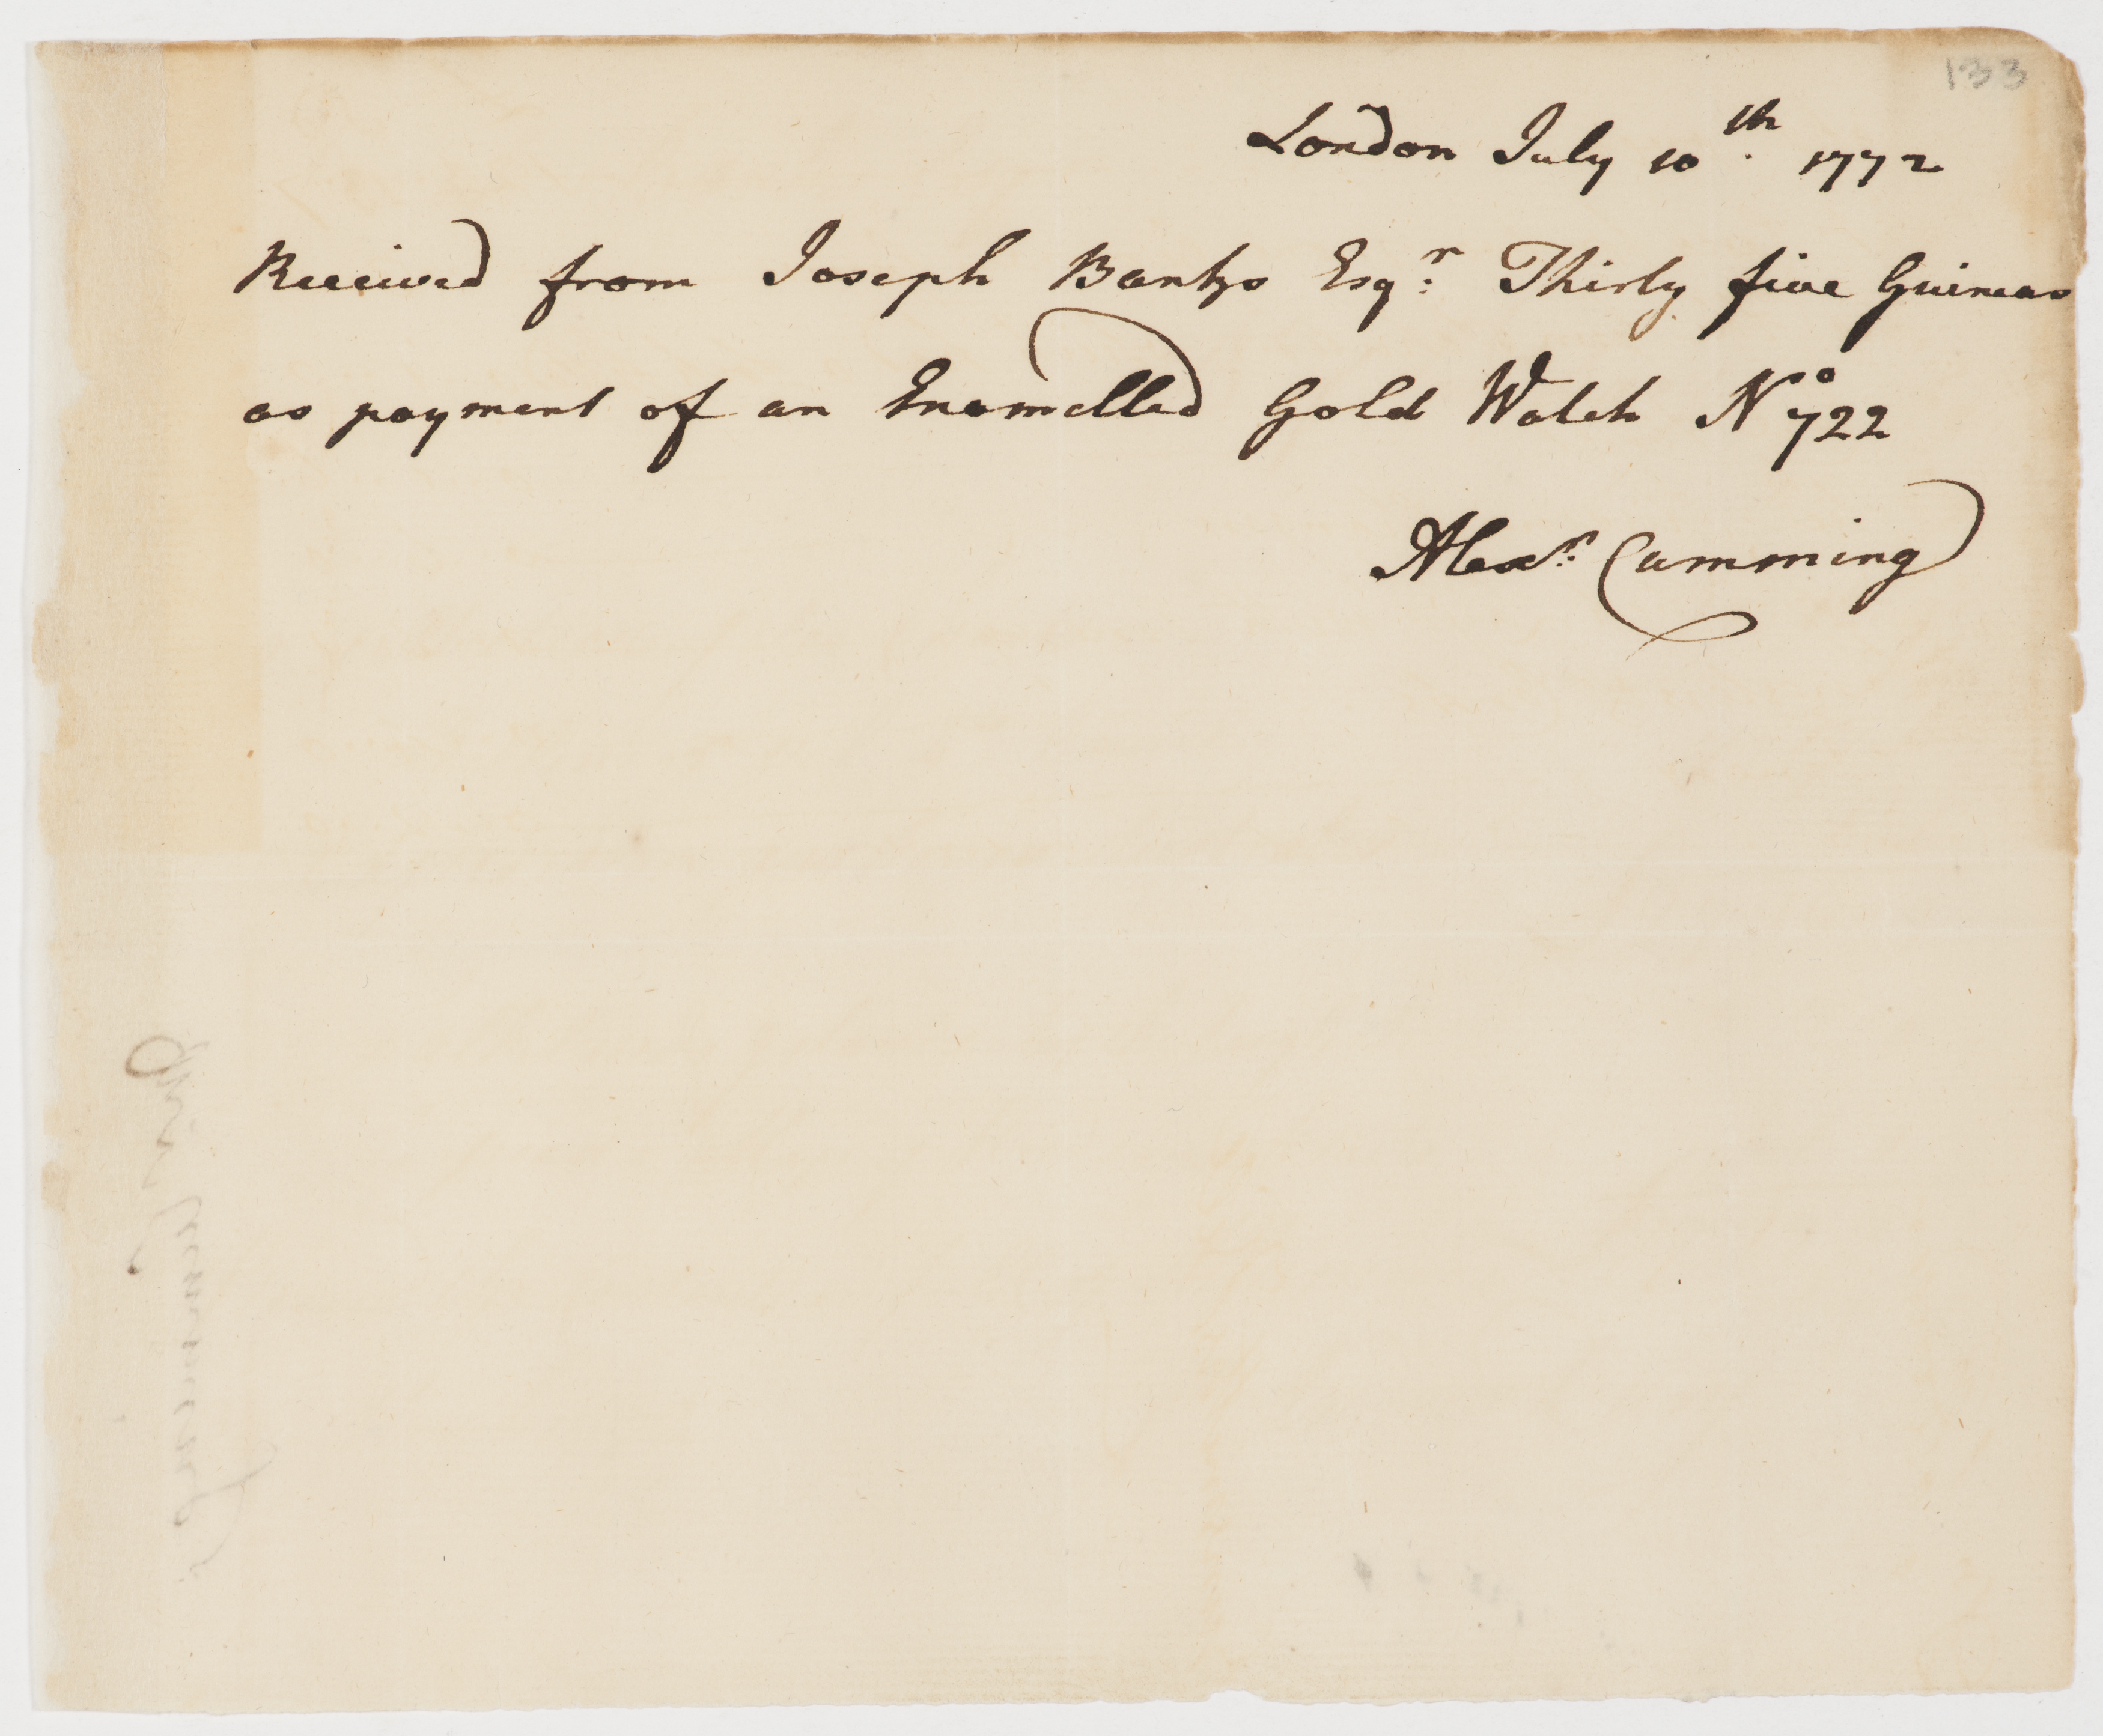 133
London July 10th. 1772
Received from Joseph Banks Esqr. Thirty five Guineas
as payment of an Enamelled Gold Watch No 722
Alexr. Cumming